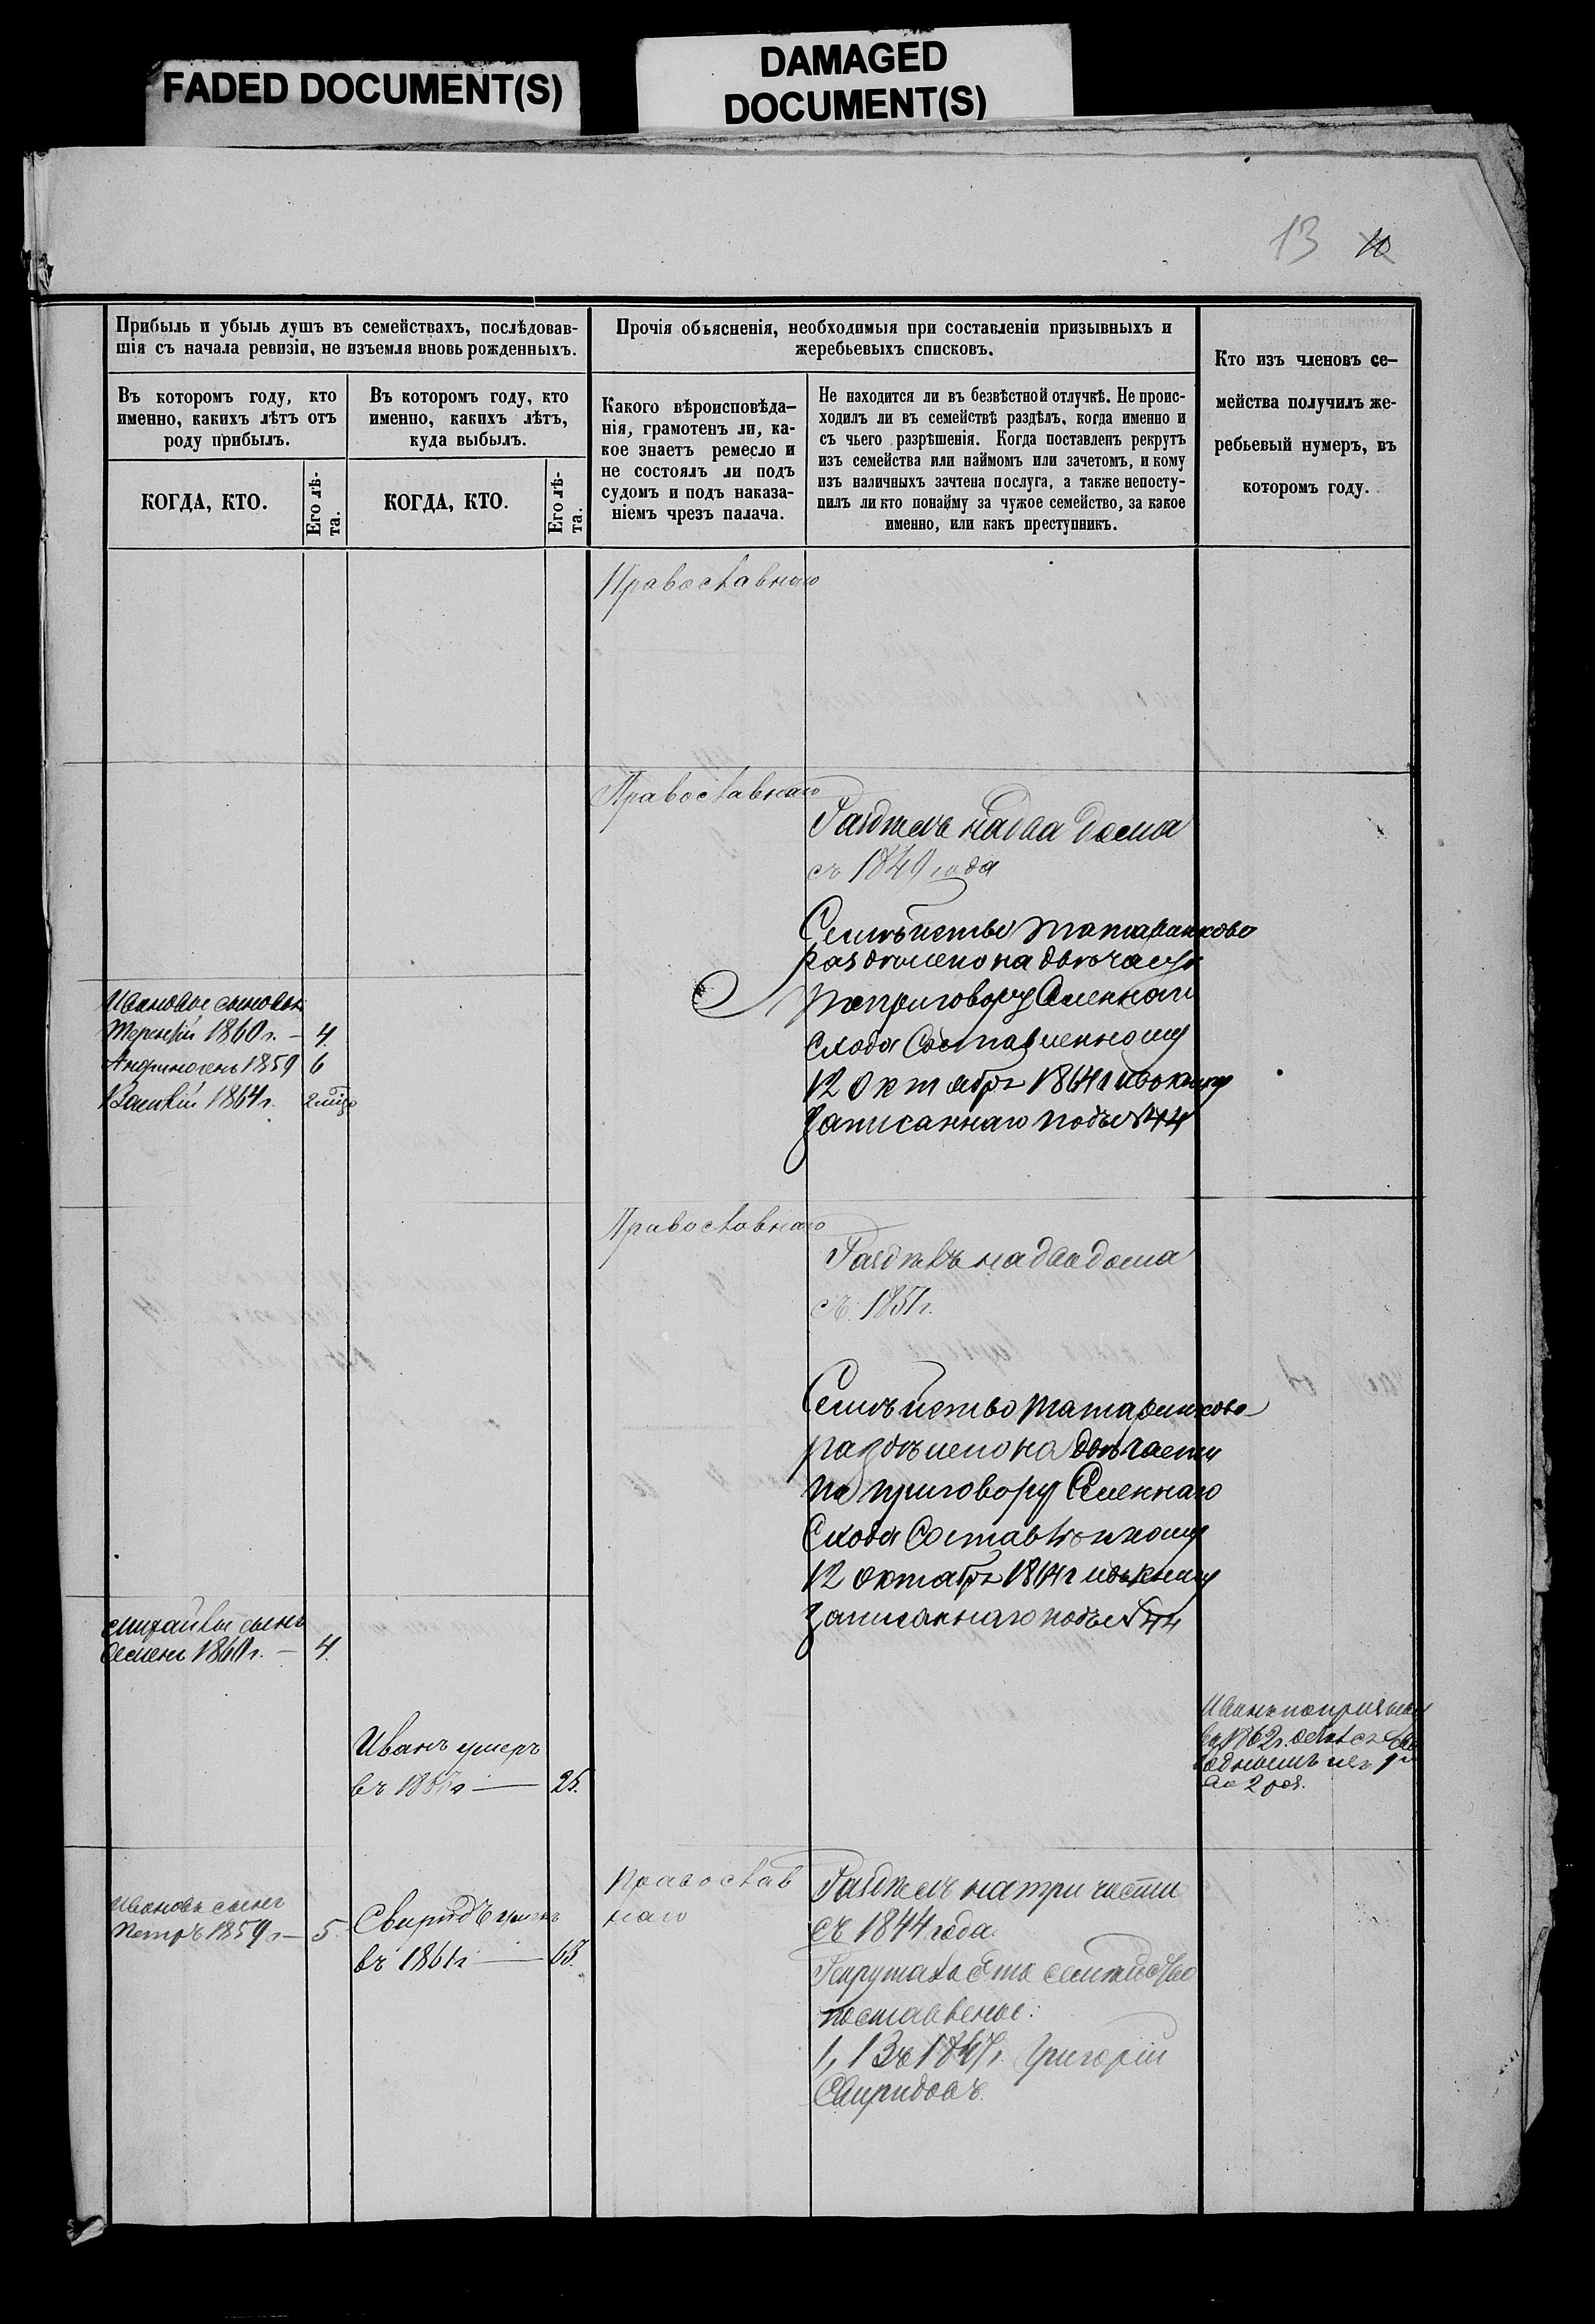 FADED DOCUMENT(S)
DAMAGED
DOCUMENT(S)
13 10
Прибыль и убыль душъ въ семействахъ, послѣдовав-
шія съ начала ревизіи, не изъемля вновь рожденныхъ.
Прочія объясненія, необходимыя при составленіи призывныхъ и
жеребьевыхъ списковъ.
Кто изъ членовъ се-
мейства получилъ же-
ребьевый нумеръ, въ
которомъ году.
Въ которомъ году, кто
именно, какихъ лѣтъ отъ
роду прибылъ.
Въ которомъ году, кто
именно, какихъ лѣтъ,
куда выбылъ.
Какого вѣроисповѣда-
нія, грамотенъ ли, ка-
кое знаетъ ремесло и
не состоялъ ли подъ
судомъ и подъ наказа-
ніемъ чрезъ палача.
Не находится ли въ безвѣстной отлучкѣ. Не проис-
ходилъ ли въ семействѣ раздѣлъ, когда именно и
съ чьего разрѣшенія. Когда поставленъ рекрутъ
изъ семейства или наймомъ или зачетомъ, и кому
изъ наличныхъ зачтена послуга, а также непосту-
пилъ ли кто понайму за чужое семейство, за какое
именно, или какъ преступникъ.
КОГДА, КТО.
Его лѣ-
та.
КОГДА, КТО.
Его лѣ-
та.
Православнаго
Православнаго
Раздѣлъ на два дома
съ 1849 года
Семѣйство Татаринково
раздѣлено на двѣ части
по приговору Селеннаго
Схода Составленному
12 октября 1864 г и въ книгу
Записаннаго подъ № 44
Ивановы сыновья
Терентій 1860 г. — 4.
Андриногенъ 1859 6
1864 г.
Православнаго
Раздѣлъ на два дома
съ 1851 г.
Семѣйство Татаринково
раздѣлено на двѣ части
по приговору Селеннаго
Схода Составлѣнному
12 октября 1864 г и въ книгу
Записаннаго подъ № 44
сынъ
Семенъ 1860 г. — 4.
Иванъ умеръ
въ — 25.
Иванъ
въ 1862 г.
Ивановъ сынъ
Петръ 1859 г — 5
Свиридъ умеръ
въ 1861 г — 63.
Православ
наго
Раздѣлъ на три части
съ 1844 года.
Рекрута семѣйство
поставленое:
1, Въ Григорій
Свиридовъ.